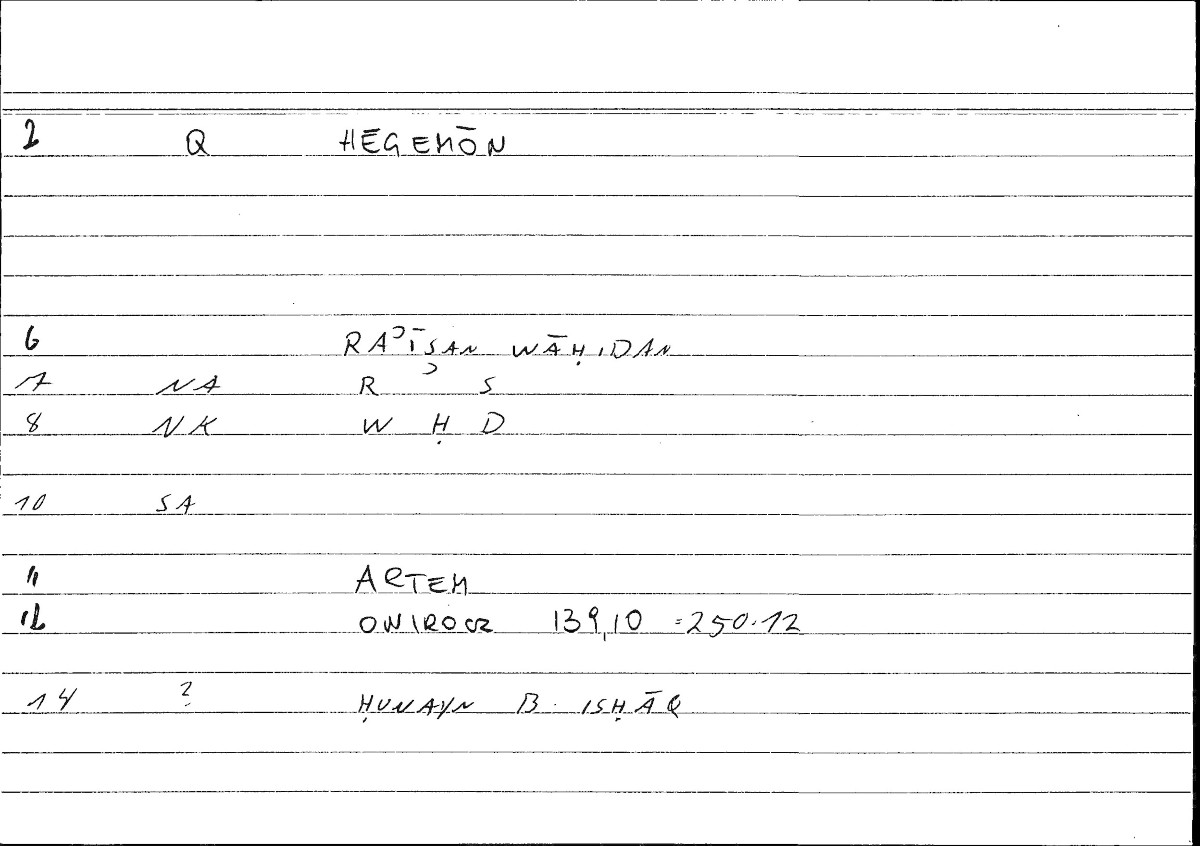 2 Q HĒGEMŌN
6 RAʾĪSAN WĀḤIDAN
7 NA R ʾ S
8 NK W Ḥ D
10 SA
11 ARTEM
12 ONIROCR 139,10 =250.12
14 ? ḤUNAYN B. ISḤĀQ